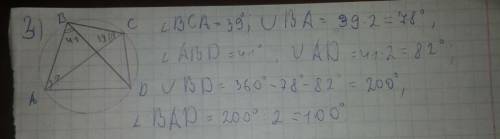 3)
B
C
41
39
A
D
∠BCA = 39°, ∪BA = 39·2 = 78°,
∠ABD = 41°, ∪AD = 41·2 = 82°,
∪BD = 360° - 78° - 82° = 200°,
∠BAD = 200° : 2 = 100°